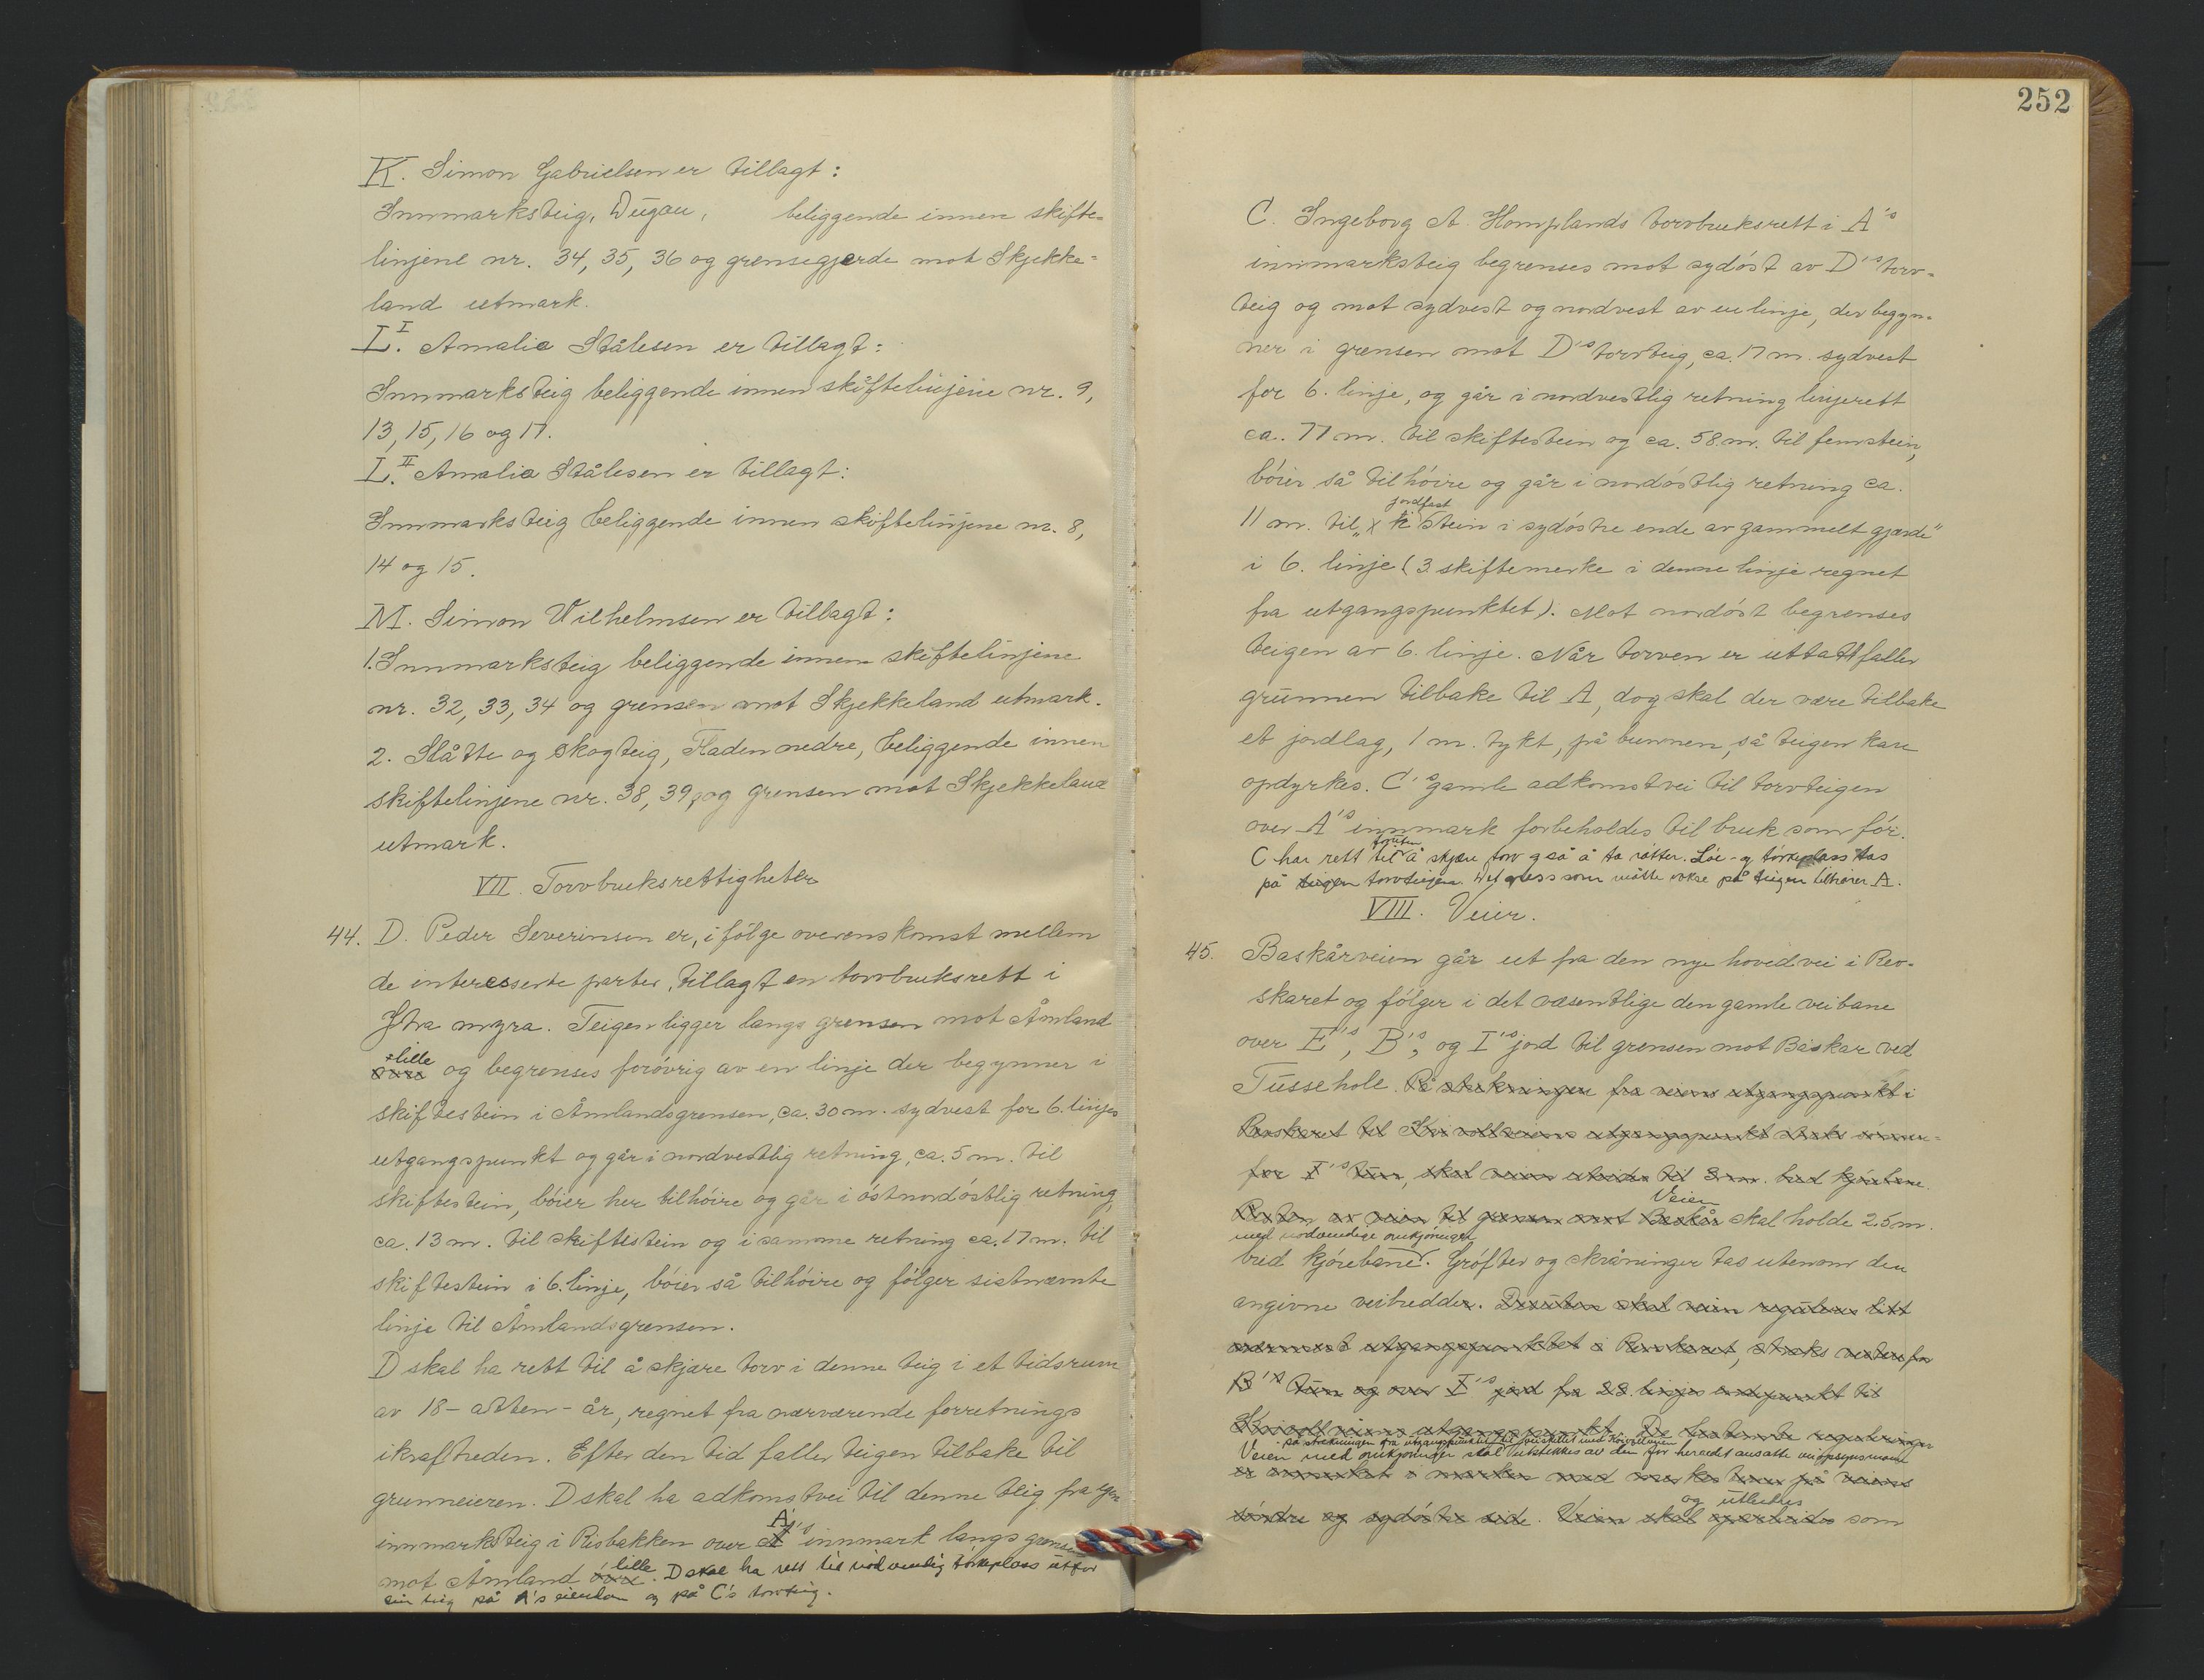 K. Simon Gabrielsen er tillagt:
Innmarksteig, Dugau, beliggende innen skifte-
linjene nr. 34, 35, 36 og grensegjerde mot Skjekke-
land utmark.
L.I Amalia Stålesen er tillagt:
Innmarksteig beliggende innen skiftelinjene nr. 9,
13, 15, 16 og 17.
L.II Amalia Stålesen er tillagt:
Innmarksteig beliggende innen skiftelinjene nr. 8,
14 og 15.
M. Simon Wilhelmsen er tillagt:
1. Innmarksteig beliggende innen skiftelinjene
nr. 32, 33, 34 og grensen mot Skjekkeland utmark.
2. Slåtte og Skogteig, Fladen nedre, beliggende innen
skiftelinjene nr. 38, 39, og grensen mot Skjekkeland
utmark.
VII. Torvbruksrettigheter
44. D. Peder Severinsen er, i følge overenskomst mellem
de interesserte parter, tillagt en torvbruksrett i
myra. Teigen ligger langs grensen mot Åmland
lille
og begrenses forøvrig av en linje der begynner i
skiftestein i Åmlandsgrensen, ca. 30 m. sydvest for 6. linjes
utgangspunkt og går i nordvestlig retning, ca. 5 m. til
skiftestein, bøier her tilhøire og går i østnordøstlig retning,
ca. 13 m. til skiftestein og i samme retning ca. 17 m. til
skiftestein i 6. linje, bøier så tilhøire og følger sistnevnte
linje til Åmlandsgrensen.
D skal ha rett til å skjære torv i denne teig i et tidsrum
av 18 - atten - år, regnet fra nærværende forretnings
ikraftreden. Efter den tid faller teigen tilbake til
grunneieren. D skal ha adkomstvei til denne teig fra egen
innmarksteig i Risbakken over A's innmark langs grensen
mot Åmland lille. D skal ha rett til nødvendig tørkeplass utfor
sin teig på A's eiendom og på C's torvteig.
252
C. Ingeborg A. Homplands torvbruksrett i A's
innmarksteig begrenses mot sydøst av D's torv-
teig og mot sydvest og nordvest av en linje, der begyn-
ner i grensen mot D's torvteig, ca. 17 m. sydvest
for 6. linje, og går i nordvestlig retning linjerett
ca. 77 m. til skiftestein og ca. 58 m. til femstein,
bøier så tilhøire og går i nordøstlig retning ca.
jordfast
11 m. til „x i stein i sydøstre ende av gammelt gjærde"
i 6. linje (3. skiftemerke i denne linje regnet
fra utgangspunktet). Mot nordøst begrenses
teigen av 6. linje. Når torven er uttatt faller
grunnen tilbake til A, dog skal der være tilbake
et jordlag, 1 m. tykt, på bunnen, så teigen kan
opdyrkes. C's gamle adkomstvei til torvteigen
over A's innmark forbeholdes til bruk som før.
foruten
C har rett til å skjære torv også å ta røtter. Løe- og tørkeplass tas
på teigen torvteigen. Det gress som måtte vokse på teigen tilhører A.
VIII. Veier.
45. Baskårveien går ut fra den nye hovedvei i Rev-
skaret og følger i det væsentlige den gamle veibane
over E's, B's, og I's jord til grensen mot Baskår ved
Tussehole. På strekningen fra veiens utgangspunkt i
Revskaret til Kvivollveiens utgangspunkt straks innen-
for I's tun, skal veien utvides til 3 m. bred kjørebane.
Veien
Resten av veien til grensen mot Baskår skal holde 2.5 m.
med nødvendige omkjøringer
bred kjørebane. Grøfter og skråninger tas utenom den
angivne veibredde. Desuten skal veien reguleres litt
nærmest utgangspunktet i Revskaret, straks vesten for
B's tun og over I's jord fra 28. linjes endepunkt til
Kvivollveiens utgangspunkt. De bestemte reguleringer
på strekningen fra utgangspunktet til veiskillet med Kvivollveien
Veien med omkjøringer skal utstikkes av den for heradet ansatte veiopsynsmann
er avmerket i marken med merkestener på veiens
og utbedres
søndre og sydøstre side. Veien skal oparbeides som